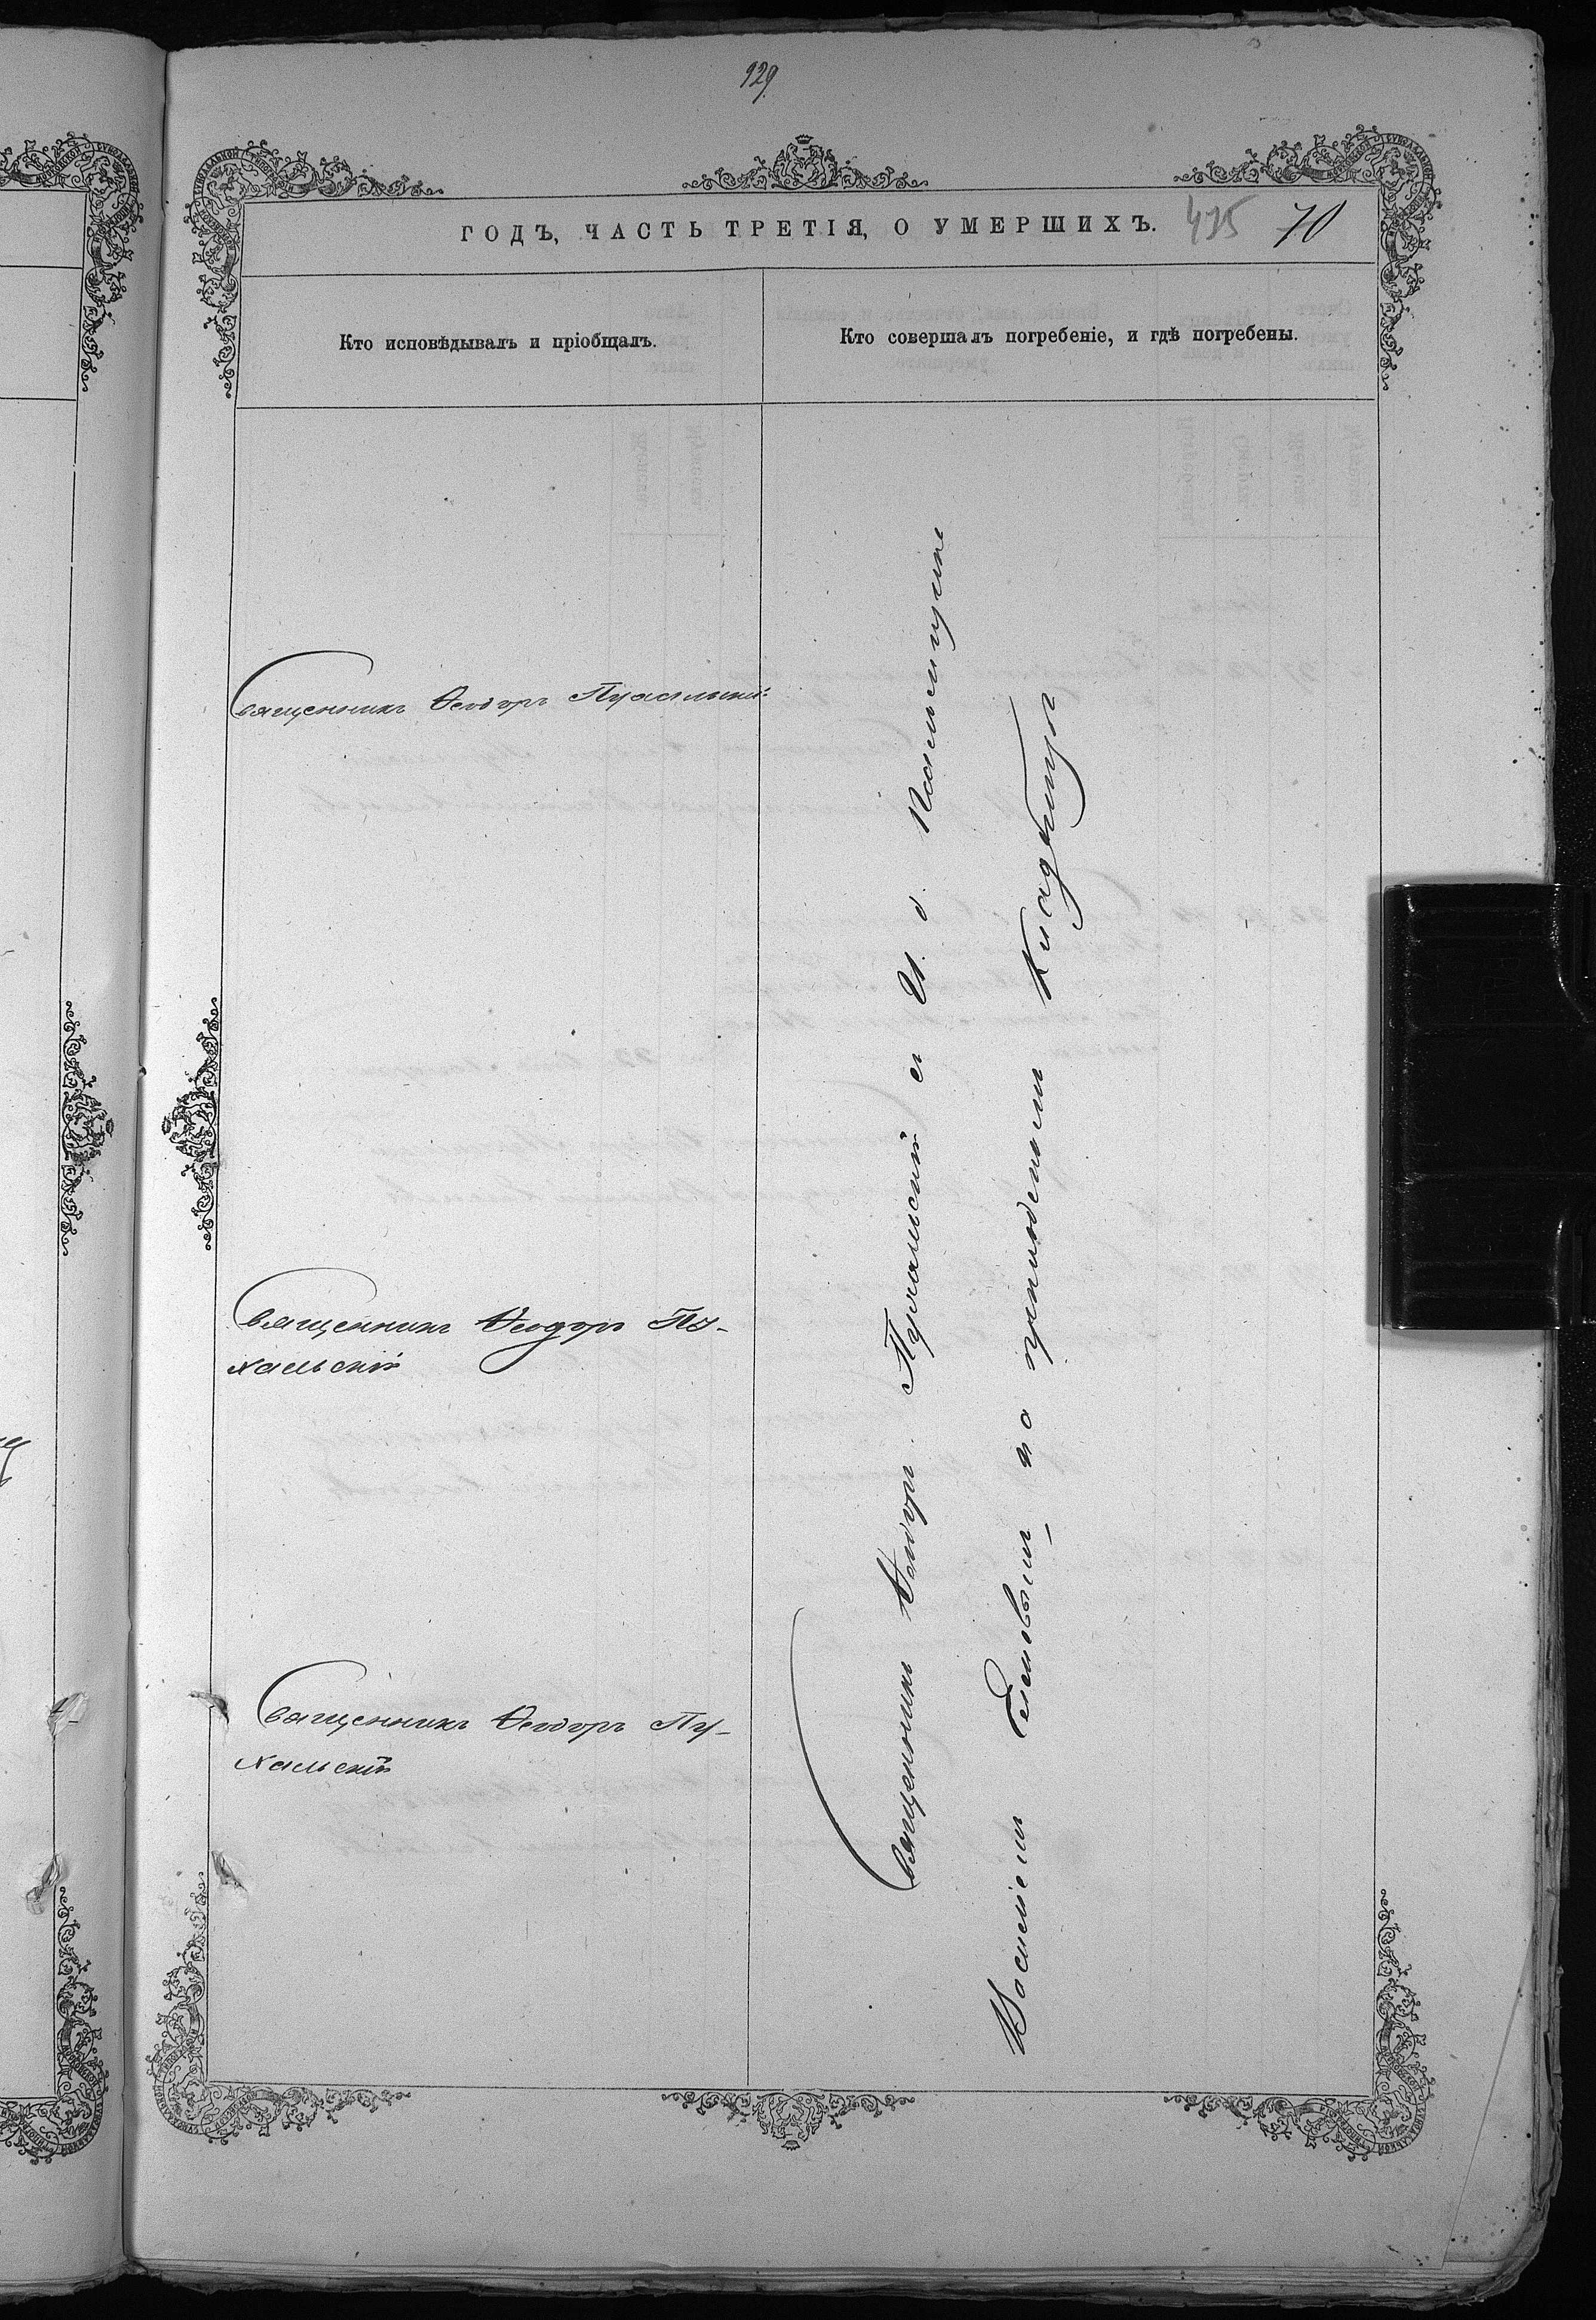 129.
ГОДЪ, ЧАСТЬ ТРЕТІЯ, О УМЕРШИХЪ. 435 70
Кто исповѣдывалъ и пріобщалъ.
Кто совершалъ погребеніе, и гдѣ погребены.
Священникъ Ѳеодоръ Пухальскій
Священникъ Ѳеодоръ Пу-
хальскій
Священникъ Ѳеодоръ Пу-
хальскій
Священникъ Ѳеодоръ Пухальскій съ И. д.
на приходскомъ кладбищѣ